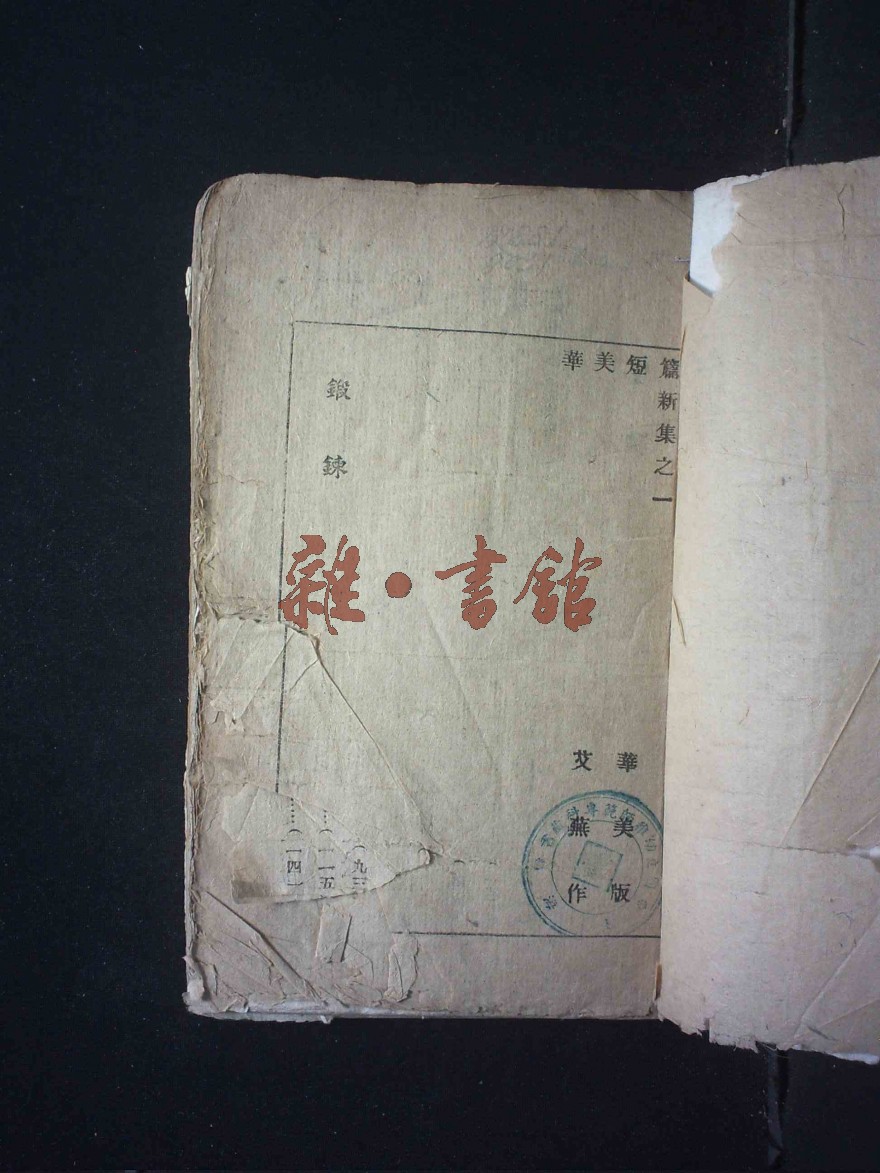 華美短篇新集之一
華美版
艾蕪作
鍛鍊
(九三
…(一一五
……(一四一
雜·書館